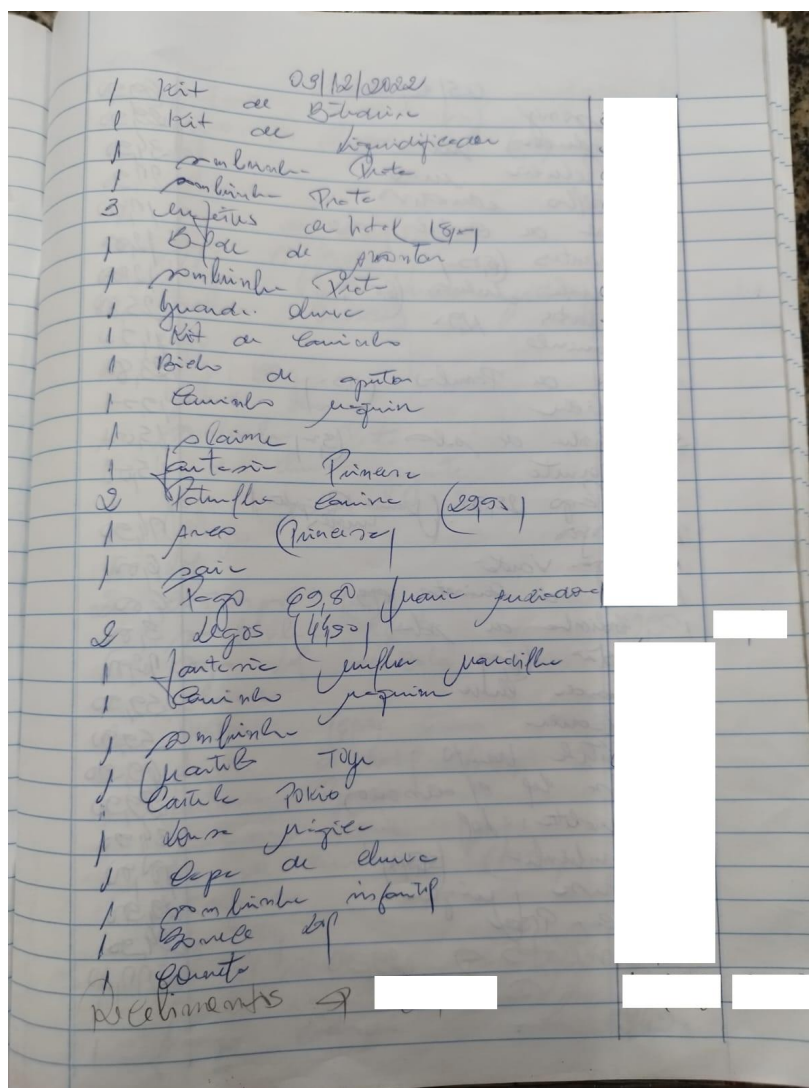 03/12/2022
1 Kit de
1 Kit de Liquidificador
1 sombrinha Preta
1 sombrinha Preta
3 de hotel
1 Balde de montar
1 sombrinha Preta
1 Guarda chuva
1 Kit de Carrinho
1 Bicho de apertar
1 Carrinho pequin
1 slaime
1 fantasia Princesa
2 Patrulha Canina (29,90)
1 Arco (Princesa)
1 saia
Pago 69,80 Maria
2 Legos (44,90)
1 fantasia mulher maravilha
1 Carrinho pequin
1 sombrinha
1 Martelo Toy
1 Cartela
1 Lousa mágica
1 Capa de chuva
1 sombrinha infantil
1 Boneca
1 Corneta
Recebimentos →